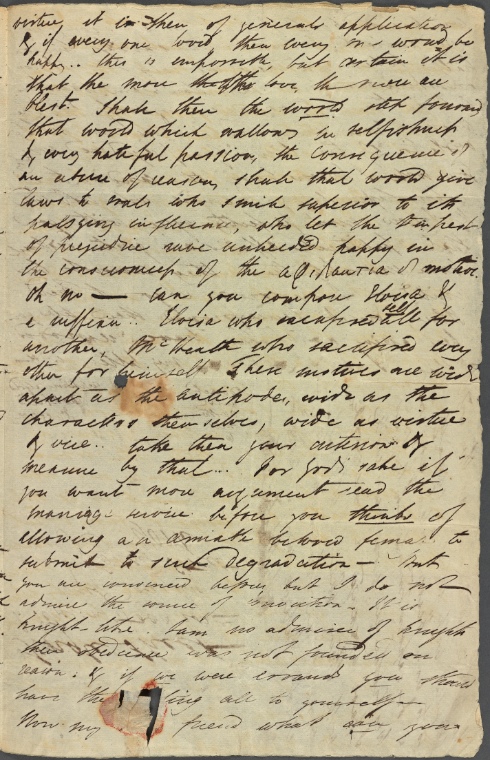 virtue it is then of general application
& if every one loved then every one would be
happy.. this is impossible, but certain it is
that the more that love, the more are
blest. Shall then the world step forward
that world which wallows in selfishness
& every hateful passion, the consequence of
an abuse of reason, shall that world give
laws to souls who smile superior to its
palsying influence, who let the tempest
of prejudice rave unheeded happy in
the consciousness of the of motive.
Oh no — can you compare Eloisa &
a ruffian .. Eloisa who sacrificed all self for
another, McHeath who sacrificed every
other for himself. These motives are wide
apart as the antipodes, wide as the
characters themselves, wide as virtue
& vice .. take then your criterion &
measure by that... For God's sake if
you want more argument read the
marriage service before you think of
allowing an amiable beloved female to
submit to such degradation — but
you are convinced before, but I do not
admire the source of It is
knight like. I am no admirer of knights
their obedience was not founded on
reason. & if we were errants you should
have the ling all to yourself —
Now my friend what are your